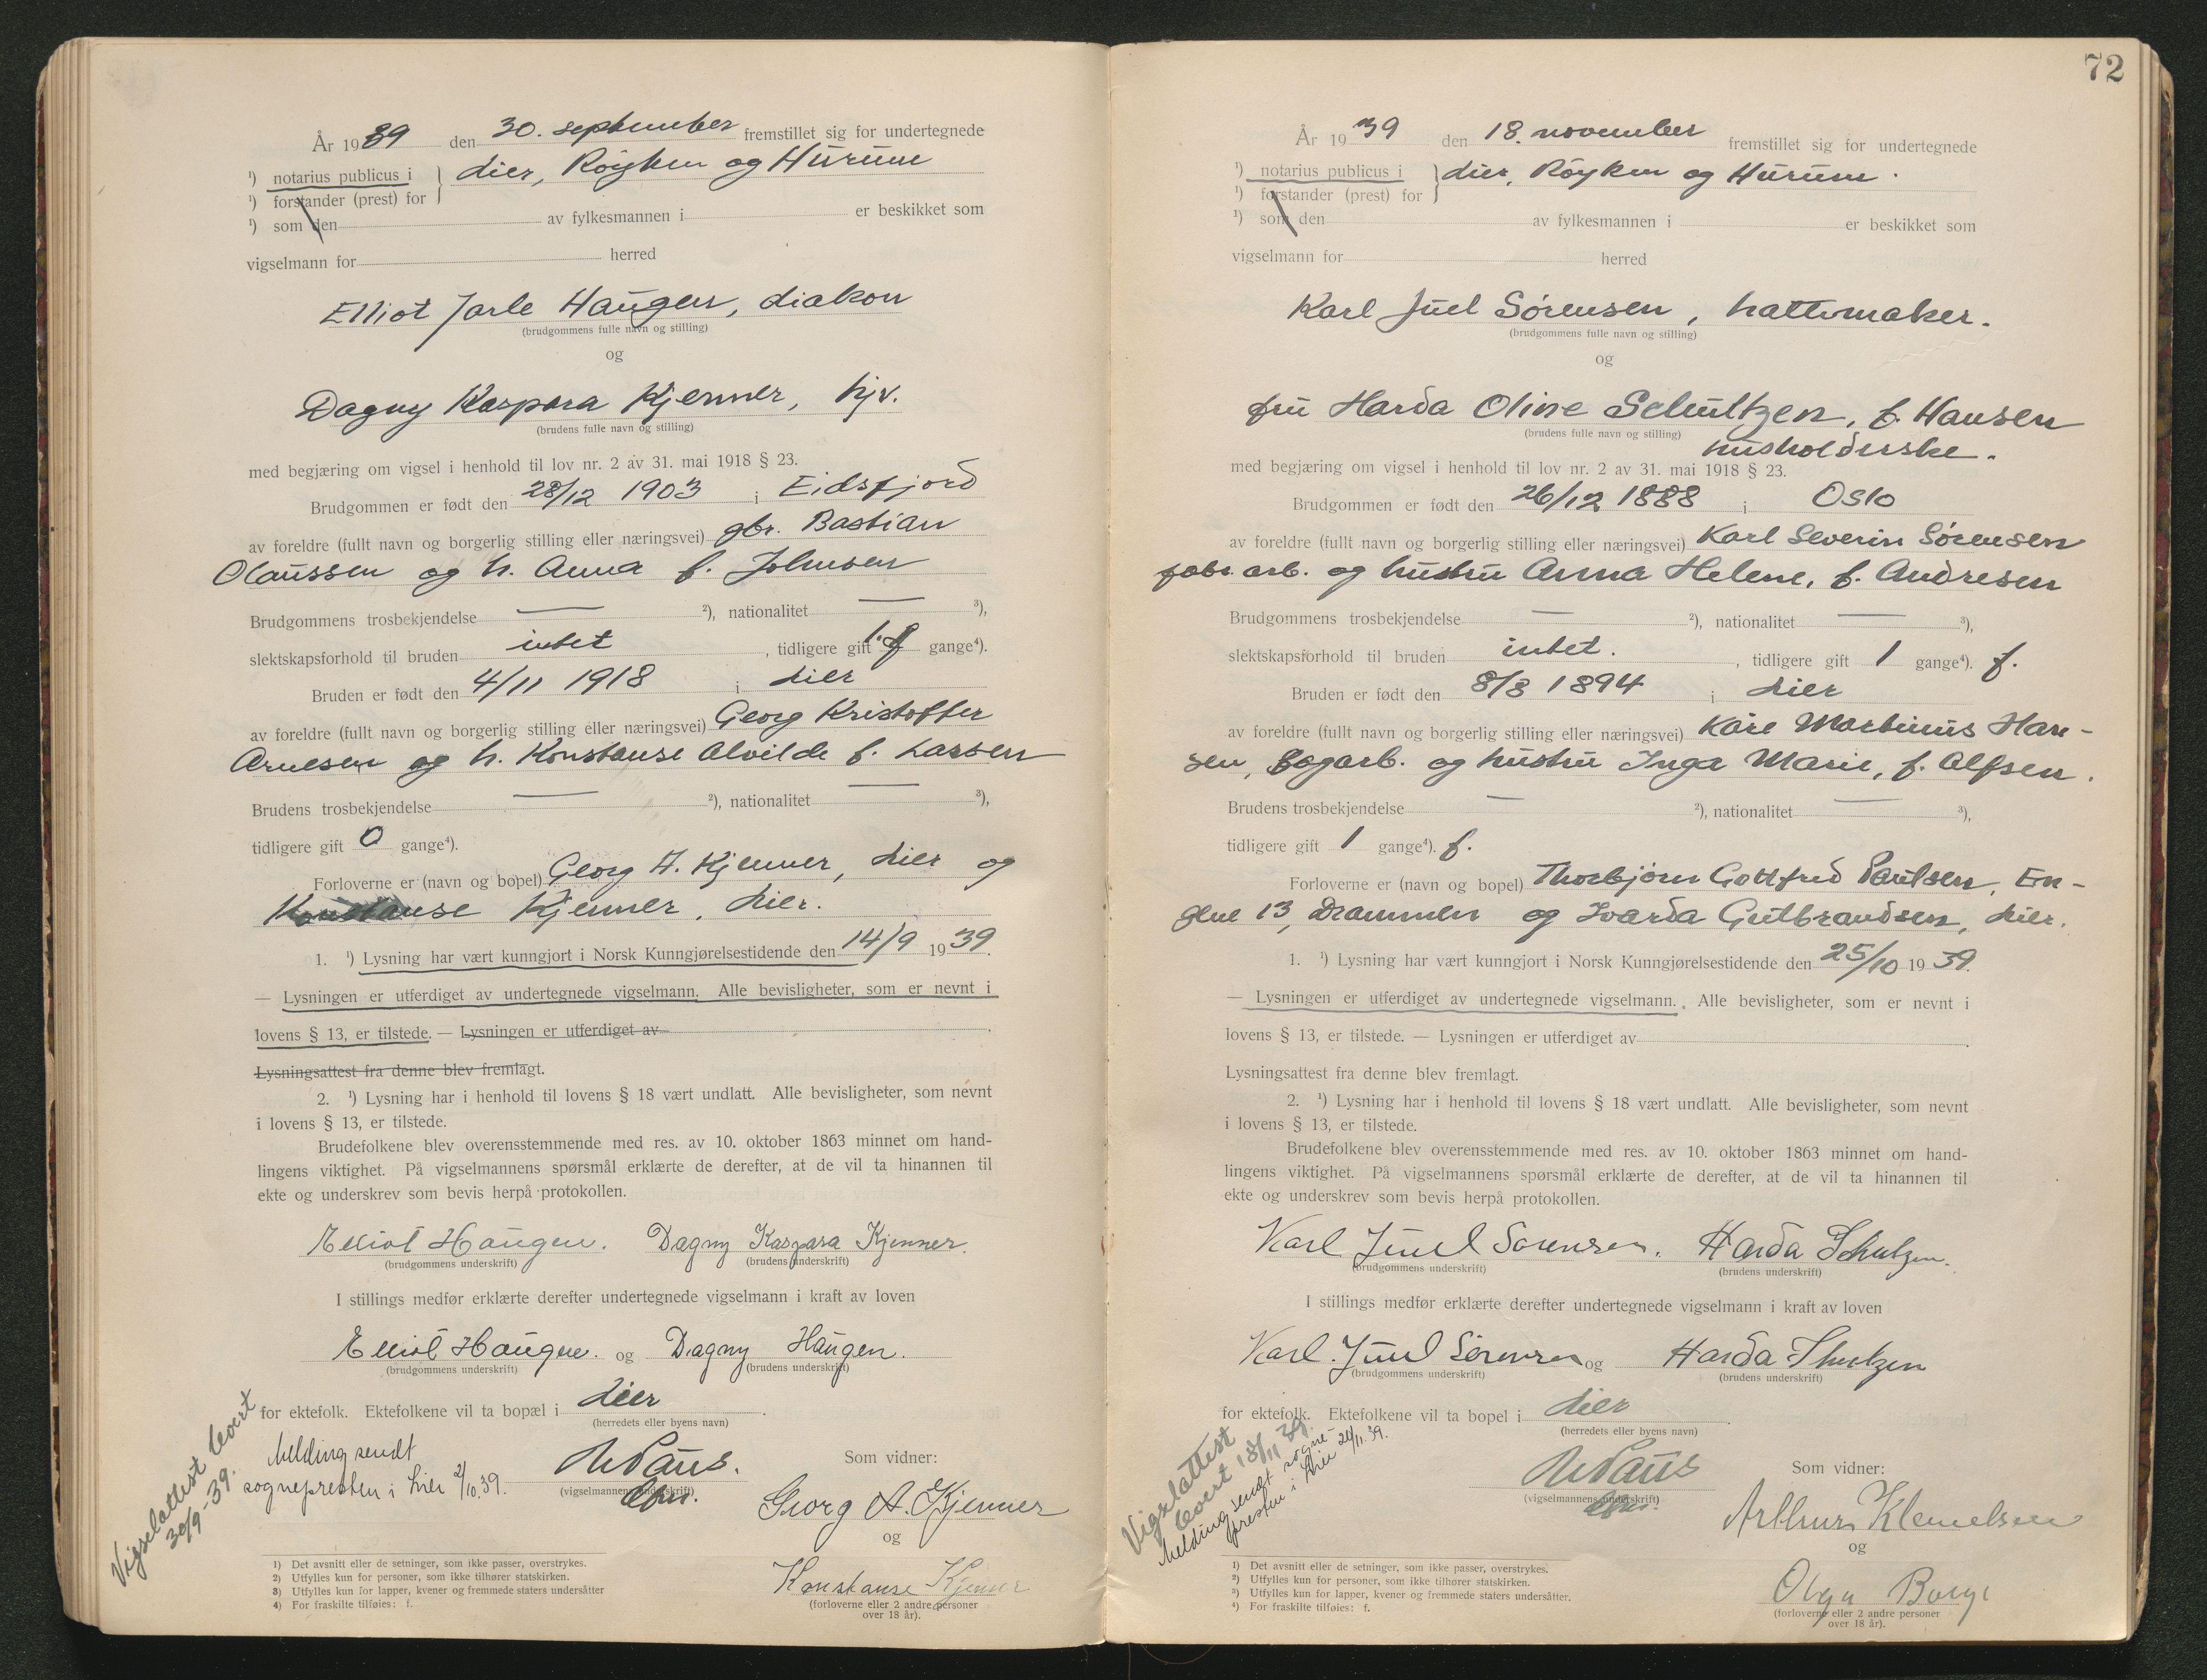 År 1939 den 30. september fremstillet sig for undertegnede
¹) notarius publicus i } Lier, Røyken og Hurum
¹) forstander (prest) for
¹) som den av fylkesmannen i er beskikket som
vigselmann for herred
Elliot Jarle Haugen, diakon
(brudgommens fulle navn og stilling)
og
Dagny Kaspara Kjenner, hjv.
(brudens fulle navn og stilling)
med begjæring om vigsel i henhold til lov nr. 2 av 31. mai 1918 § 23.
Brudgommen er født den 28/12 1903 i Eidsfjord
av foreldre (fullt navn og borgerlig stilling eller næringsvei) gbr. Bastian
Olaussen og h. Anna f. Johnsen
Brudgommens trosbekjendelse — ²), nationalitet — ³),
slektskapsforhold til bruden intet, tidligere gift 1. f gange⁴).
Bruden er født den 4/11 1918 i Lier
av foreldre (fullt navn og borgerlig stilling eller næringsvei) Georg Kristoffer
Arnesen og h. Konstanse Alvilde f. Larsen
Brudens trosbekjendelse — ²), nationalitet — ³),
tidligere gift 0 gange⁴).
Forloverne er (navn og bopel) Georg A. Kjenner, Lier og
Konstanse Kjenner, Lier.
1. ¹) Lysning har vært kunngjort i Norsk Kunngjørelsestidende den 14/9 1939.
— Lysningen er utferdiget av undertegnede vigselmann. Alle bevisligheter, som er nevnt i
lovens § 13, er tilstede. — Lysningen er utferdiget av
Lysningsattest fra denne blev fremlagt.
2. ¹) Lysning har i henhold til lovens § 18 vært undlatt. Alle bevisligheter, som nevnt
i lovens § 13, er tilstede.
Brudefolkene blev overensstemmende med res. av 10. oktober 1863 minnet om hand-
lingens viktighet. På vigselmannens spørsmål erklærte de derefter, at de vil ta hinannen til
ekte og underskrev som bevis herpå protokollen.
Elliot Haugen. Dagny Kaspara Kjenner.
(brudgommens underskrift) (brudens underskrift)
I stillings medfør erklærte derefter undertegnede vigselmann i kraft av loven
Elliot Haugen. og Dagny Haugen.
(brudgommens underskrift) (brudens underskrift)
for ektefolk. Ektefolkene vil ta bopæl i Lier.
(herredets eller byens navn)
Vigselattest levert
30/9-39.
Melding sendt
sognepresten i Lier 2/10.39.
Paus.
(vigselmannens underskrift)
Som vidner:
Georg A. Kjenner
og
Konstanse Kjenner
(forloverne eller 2 andre personer
over 18 år).
¹) Det avsnitt eller de setninger, som ikke passer, overstrykes.
²) Utfylles kun for personer, som ikke tilhører statskirken.
³) Utfylles kun for lapper, kvener og fremmede staters undersåtter
⁴) For fraskilte tilføies: f.
72
År 1939 den 18. november fremstillet sig for undertegnede
¹) notarius publicus i } Lier, Røyken og Hurum.
¹) forstander (prest) for
¹) som den av fylkesmannen i er beskikket som
vigselmann for herred
Karl Juel Sørensen, hattemaker.
(brudgommens fulle navn og stilling)
og
fru Harda Oline Schultzen, f. Hansen
(brudens fulle navn og stilling)
husholderske.
med begjæring om vigsel i henhold til lov nr. 2 av 31. mai 1918 § 23.
Brudgommen er født den 26/12 1888 i Oslo
av foreldre (fullt navn og borgerlig stilling eller næringsvei) Karl Severin Sørensen
fabr. arb. og hustru Anna Helene, f. Andresen
Brudgommens trosbekjendelse — ²), nationalitet — ³),
slektskapsforhold til bruden intet., tidligere gift 1 gange⁴). f.
Bruden er født den 8/8 1894 i Lier
av foreldre (fullt navn og borgerlig stilling eller næringsvei) Kåre Martinius Han-
sen, sagarb. og hustru Inga Marie, f. Alfsen.
Brudens trosbekjendelse — ²), nationalitet — ³),
tidligere gift 1 gange⁴). f.
Forloverne er (navn og bopel) Thorbjørn Gottfred Paulsen, En-
gene 13, Drammen og Ivarda Gulbrandsen, Lier.
1. ¹) Lysning har vært kunngjort i Norsk Kunngjørelsestidende den 25/10 1939.
— Lysningen er utferdiget av undertegnede vigselmann. Alle bevisligheter, som er nevnt i
lovens § 13, er tilstede. — Lysningen er utferdiget av
Lysningsattest fra denne blev fremlagt.
2. ¹) Lysning har i henhold til lovens § 18 vært undlatt. Alle bevisligheter, som nevnt
i lovens § 13, er tilstede.
Brudefolkene blev overensstemmende med res. av 10. oktober 1863 minnet om hand-
lingens viktighet. På vigselmannens spørsmål erklærte de derefter, at de vil ta hinannen til
ekte og underskrev som bevis herpå protokollen.
Karl Juul Sørensen. Harda Schulzen.
(brudgommens underskrift) (brudens underskrift)
I stillings medfør erklærte derefter undertegnede vigselmann i kraft av loven
Karl. Juul Sørensen og Harda Shulzen
(brudgommens underskrift) (brudens underskrift)
for ektefolk. Ektefolkene vil ta bopel i Lier.
(herredets eller byens navn)
Vigslattest
levert 18/11 39.
Melding sendt sogne-
presten i Lier 24/11.39.
Paus
(vigselmannens underskrift)
Som vidner:
Arthur Klemetsen
og
Olga
(forloverne eller 2 andre personer
over 18 år).
¹) Det avsnitt eller de setninger, som ikke passer, overstrykes.
²) Utfylles kun for personer, som ikke tilhører statskirken.
³) Utfylles kun for lapper, kvener og fremmede staters undersåtter.
⁴) For fraskilte tilføies: f.